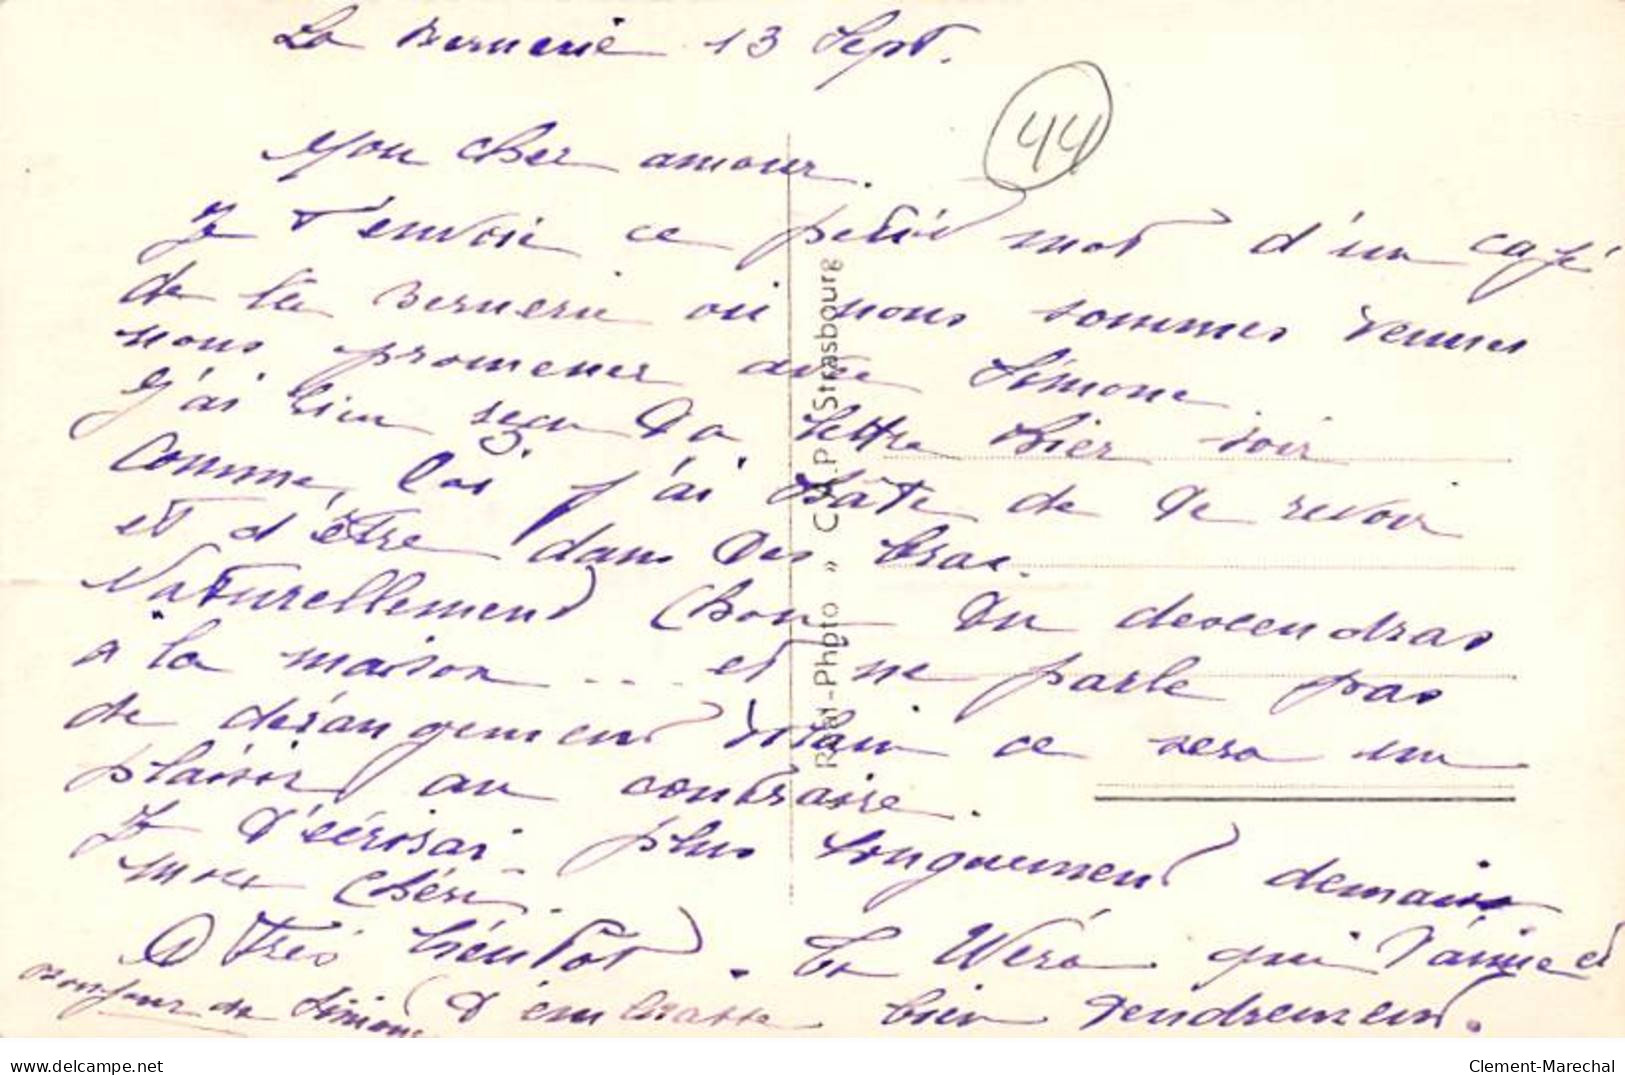 La Bernerie 13 Sept.
44
Mon cher amour.
Je t'envoie ce petit mot d'un café
de la Bernerie où nous sommes venues
nous promener avec Simone.
J'ai bien reçu ta lettre hier soir
comme toi j'ai hâte de te revoir
et d'être dans tes bras.
Naturellement Chou tu descendras
à la maison .... et ne parle pas
de dérangement vilain ce sera un
plaisir au contraire.
Je t'écrirai plus longuement demain
mon chéri.
A très bientôt. Ta Wéra qui t'aime et
t'embrasse bien tendrement.
Bonjour de Simone
Real-Photo » C.A.P. Strasbourg
delcampe.net
Clement-Marechal